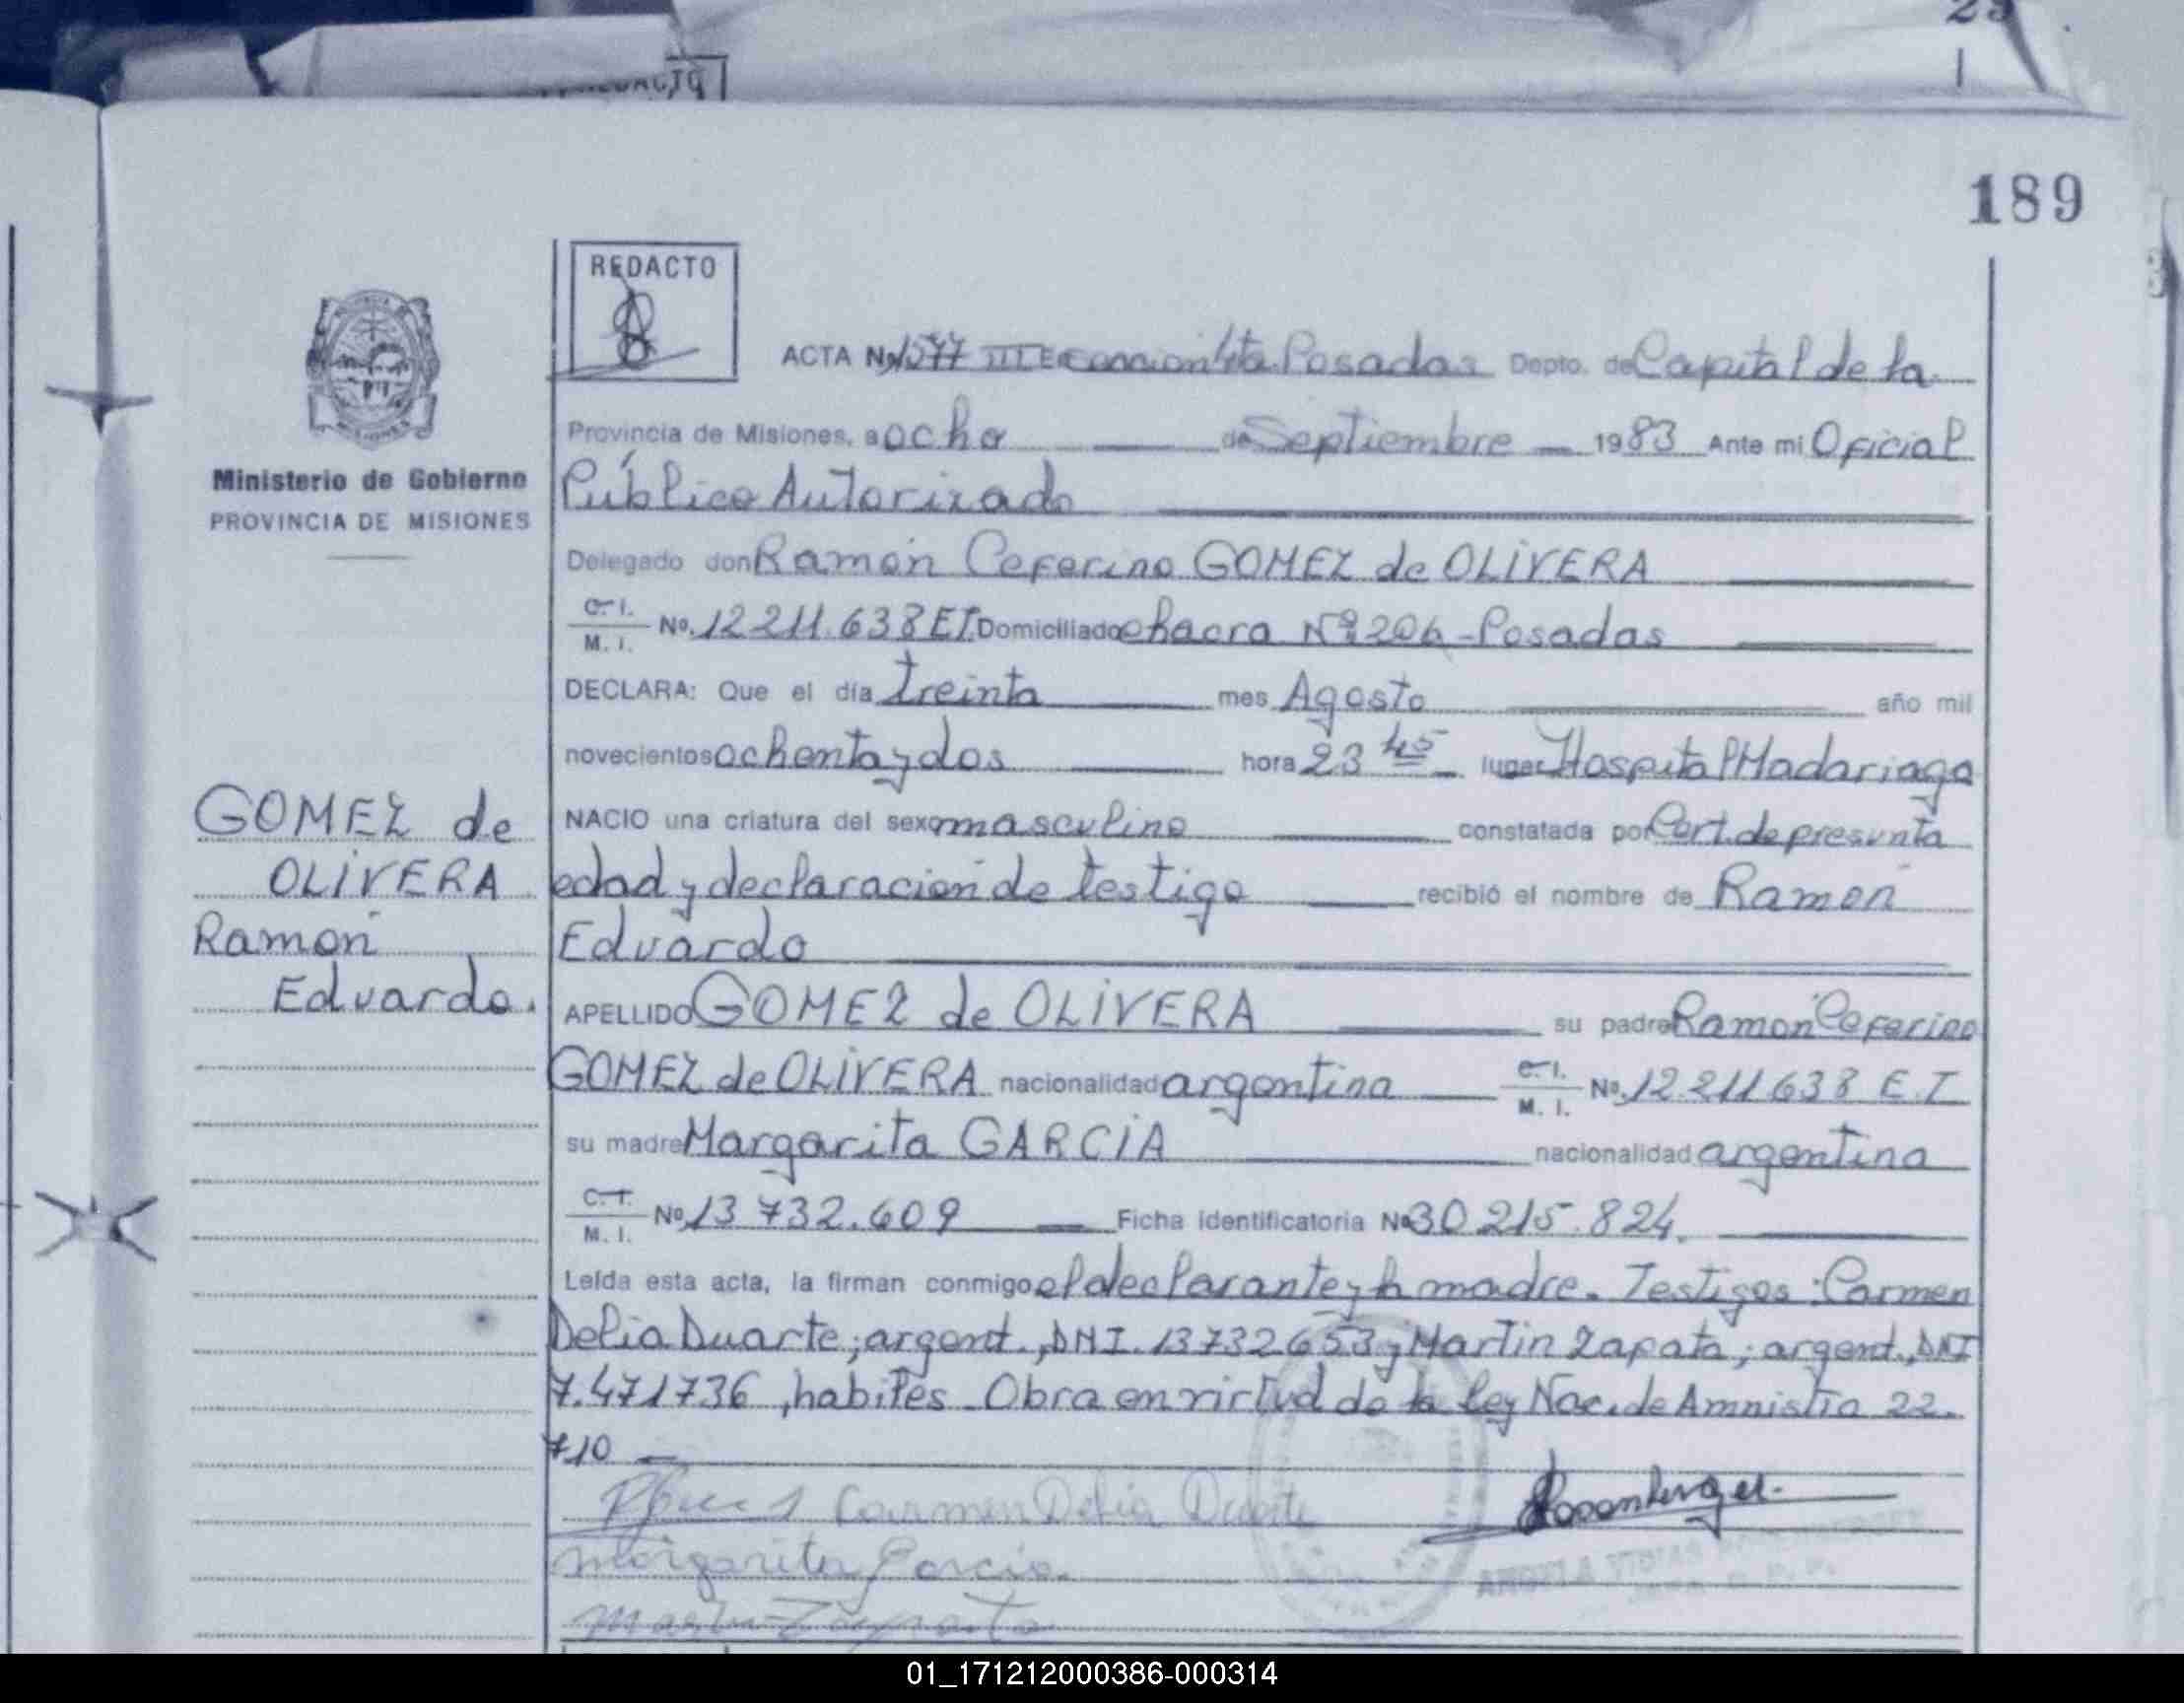 189
REDACTO
ACTA Nº 1577 III Posadas Depto. de Capital de la
Ministerio de Gobierno
PROVINCIA DE MISIONES
Provincia de Misiones, a ocho de Septiembre 1983 Ante mi Oficial
Público Autorizado
Delegado don Ramón Ceferino GOMEZ de OLIVERA
C. I. M. I. Nº. 12 211.638 E.T. Domiciliado chacra Nº 206 - Posadas
DECLARA: Que el día treinta mes Agosto año mil
novecientos ochenta y dos hora 23 45 lugar Hospital Madariaga
NACIO una criatura del sexo masculino constatada por Cert. de presunta
edad y declaración de testigo recibió el nombre de Ramón
Eduardo
APELLIDO GOMEZ de OLIVERA su padre Ramón Ceferino
GOMEZ de OLIVERA nacionalidad argentina C. I. M. I. Nº. 12.211.638 E.T
su madre Margarita GARCIA nacionalidad argentina
C. I. M. I. Nº 13 732.609 Ficha identificatoria Nº 30 215.824.
Leída esta acta, la firman conmigo el declarante y la madre. Testigos: Carmen
Delia Duarte; argent., DNI. 13732653 y Martin Zapata; argent., DNI
7.471736, habiles - Obra en virtud de la ley Nac. de Amnistia 22.
710
GOMEZ de
OLIVERA
Ramón
Eduardo.
Carmen Delia Duarte
Margarita Garcia
Martin Zapata
01_171212000386-000314